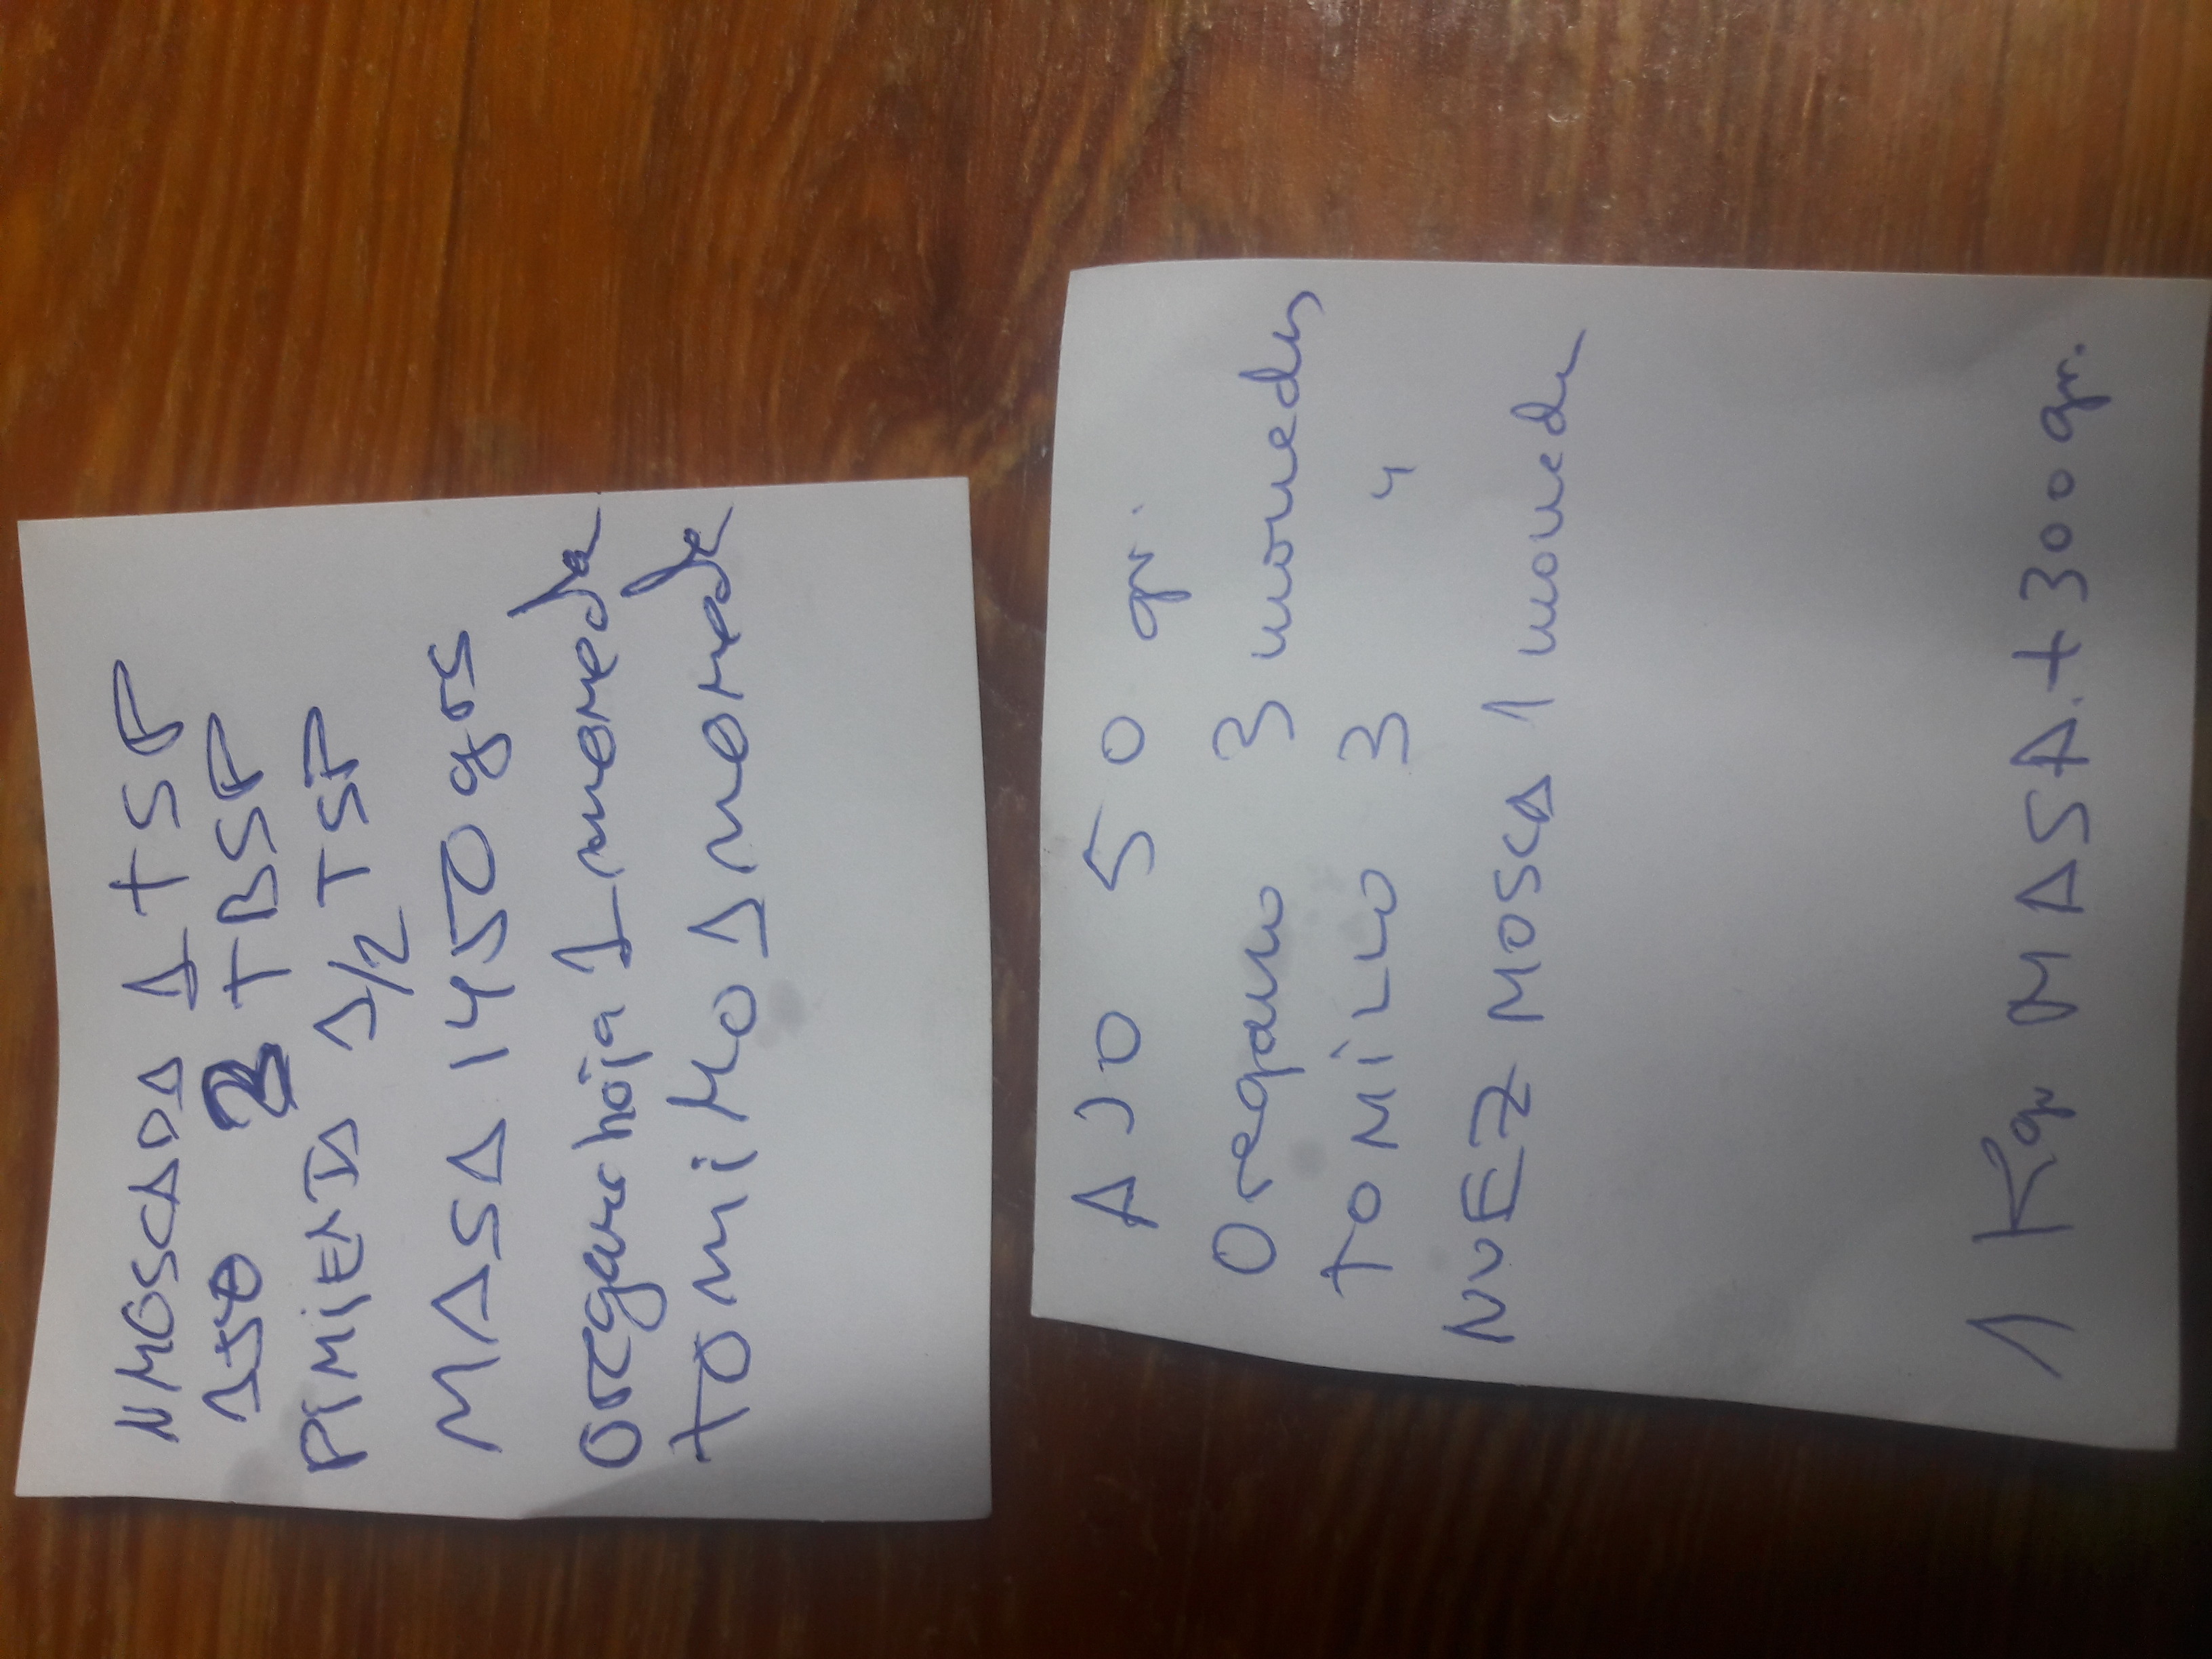 N MOSCADA 1 TSP
AJO 2 TBSP
PIMIENTA 1/2 TSP
MASA 1450 grs
oregano hoja 1 moneda
tomillo 1 moneda
AJO 50 gr.
Oregano 3 monedas
TOMILLO 3 "
NUEZ MOSCA 1 moneda
1 Kgr MASA + 300 gr.